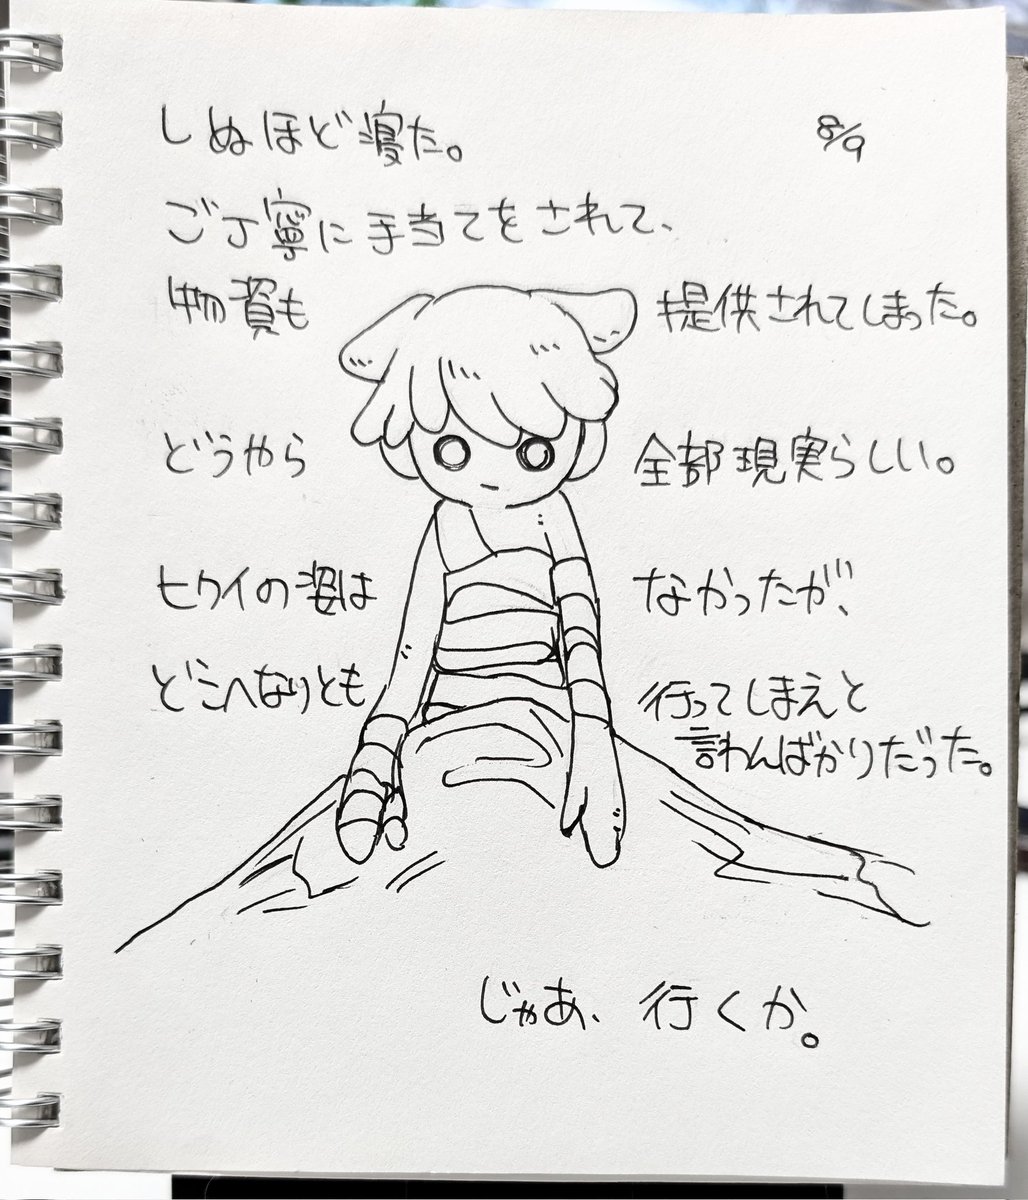 8/9
しぬほど寝た。
ご丁寧に手当てをされて、
物資も 提供されてしまった。
どうやら 全部現実らしい。
ヒウイの姿は なかったが、
どこへなりとも 行ってしまえと
言わんばかりだった。
じゃあ、行くか。